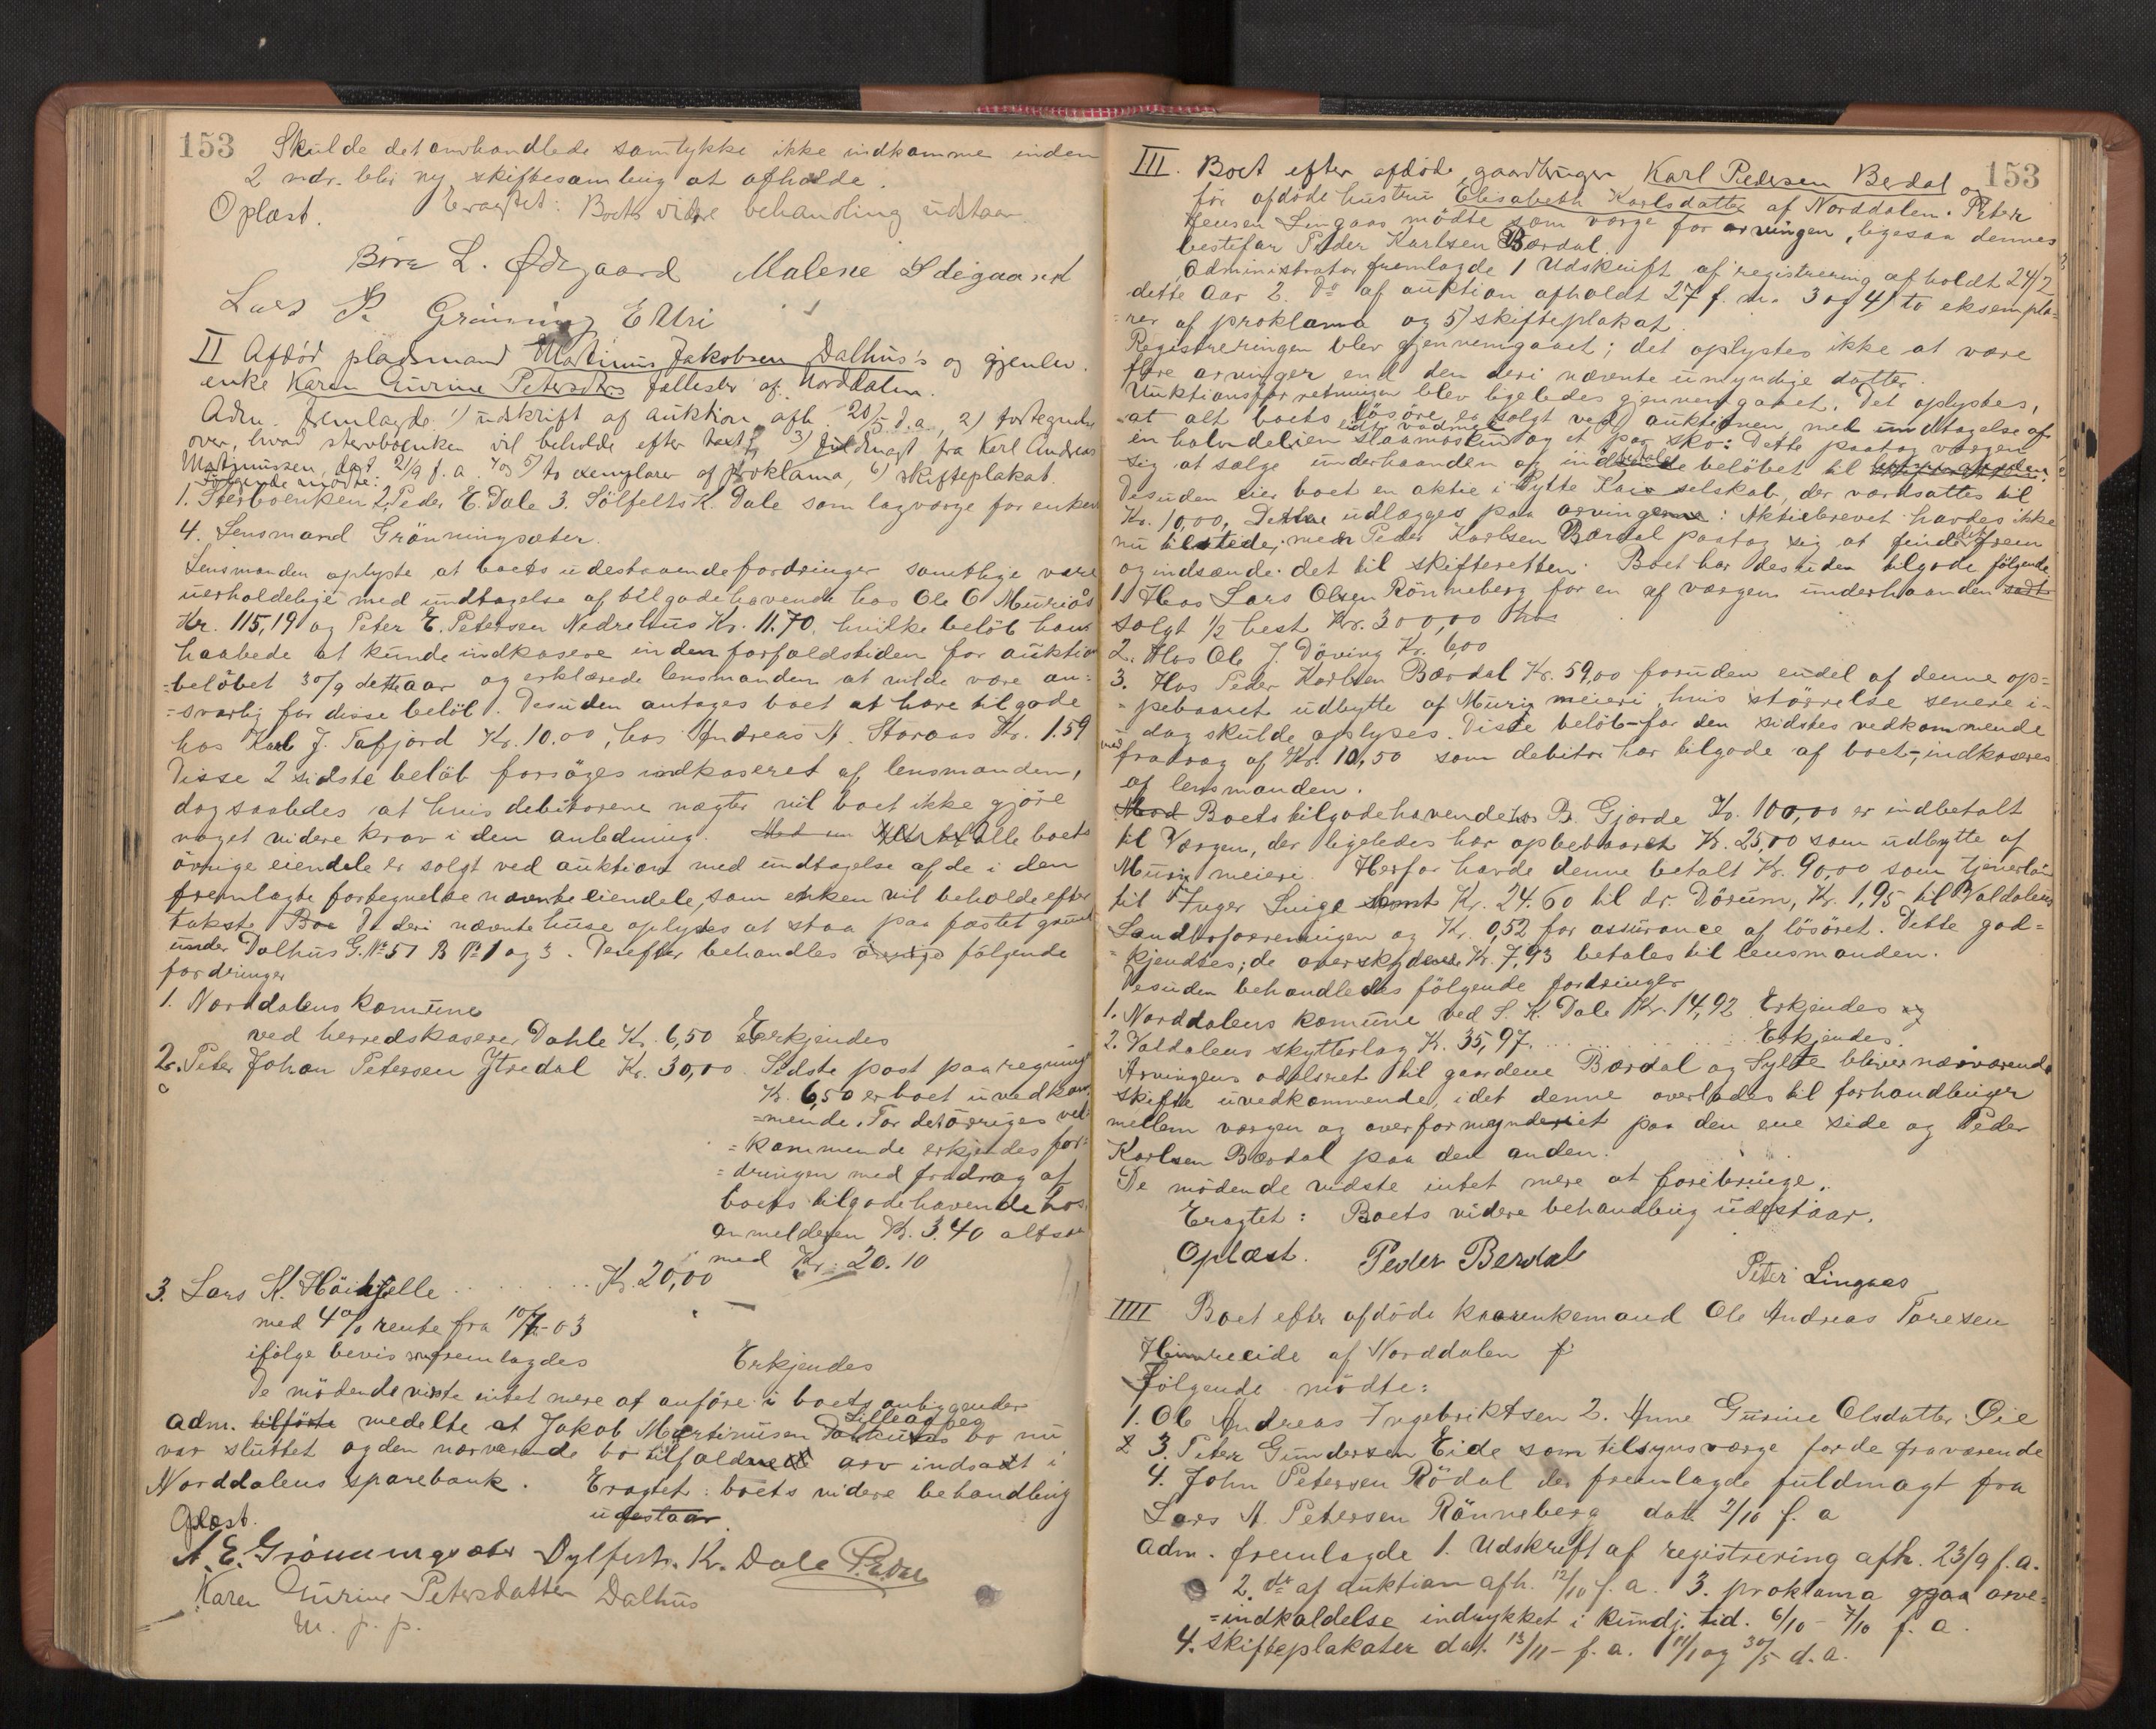 153 Skulde det omhandlede samtykke ikke indkomme inden
2 mdr. blir ny skiftesamling at afholde.
Oplæst. Eragtet: Boets vidre behandling udstaar.
Børre L. Ødegaard Malene Ødegaard
Lars P. Grönning E Uri
II Afdød pladsmand Martinus Jakobsen Dalhus's og gjenlev.
enke Karen Gurine Petersdtrs fællesbo af Norddalen.
Adm. fremlagde 1) udskrift af auktion afh. 20/5 d.a., 2) fortegnelse
over, hvad stervboenken vil beholde efter taxt, 3) fuldmagt fra Karl Andreas
Martinussen, dat. 21/9 f. a. 4 og 5) to exemplarer af proklama, 6) skifteplakat.
Følgende mødte:
1. Sterboenken 2. Peder E. Dale 3. Sölfest K. Dale som lagværge for enken
4. Lensmand Grönningsæter.
Lensmanden oplyste at boets udestaaende fordringer samtlige være
uerholdelige med undtagelse af tilgodehavende hos Ole O Muriås
Kr. 115,19 og Peter E. Petersen Nedrehus Kr. 11.70, hvilke beløb han
haabede at kunde indkasere inden forfaldstiden for auktions
=beløbet 30/9 dette aar og erklærede lensmanden at vilde være an=
=svarlig for disse beløb. Desuden antages boet at have tilgode
hos Karl J. Tafjord Kr. 10.00, hos Andreas A. Storaas Kr. 1.59
Disse 2 sidste beløb forsøges indkaseret af lensmanden,
dog saaledes at hvis debitorene nægter vil boet ikke gjøre
noget videre krav i den anledning. Alle boets
øvrige eiendele er solgt ved auktion med undtagelse af de i den
fremlagte fortegnelse nævnte eiendele, som enken vil beholde efter
takste De deri nævnte huse oplyses at staa paa fæstet grund
under Dalhus G.No 57 B No 1 og 3. Derefter behandles følgende
fordringer
1. Norddalens komune
ved herredskaserer Dahle Kr. 6,50 Erkjendes
2. Peter Johan Petersen Ytredal Kr. 30,00. Sidste post paa regning
Kr. 6,50 er boet uvedkom
=mende. For det øvriges ved
=kommende erkjendes for=
=dringen med fradrag af
boets tilgodehavende hos
anmelderen Kr. 3.40 altsaa
med Kr. 20.10
3. Lars K. Höidfjelle Kr. 20,00
med 4% rente fra -03
ifølge bevis som fremlagdes Erkjendes
De mødende viste intet mere at anføre i boets anliggender
Adm. tilførte medelte at Jakob Martinusen Lilleaas bo nu
var sluttet og den nærværende bo tilfaldne arv indsadt i
Norddalens sparebank. Eragtet: boets videre behandling
udestaar.
Oplæst.
A. E. Grönningsæter Sylfest. K. Dale P. E. Dale
Karen Gurine Petersdatter Dalhus
m. p. p.
III. Boet efter afdøde gaardbruger Karl Pedersen Berdal og 153
før afdøde hustru Elisabeth Karlsdatter af Norddalen. Peter
Jensen Lingaas mødte som værge for arvingen, ligesaa dennes
bestefar Peder Karlsen Bærdal.
Administrator fremlagde 1 Udskrift af registrering afholdt 24/2
dette aar 2. do af auktion afholdt 27 f. m. 3 og 4) to eksempla=
=rer af proklama og 5) skifteplakat.
Registreringen blev gjennemgaaet; det oplystes ikke at være
flere arvinger end den deri nævnte umyndige datter.
Auktionsforretningen blev ligeledes gjennemgaaet. Det oplystes,
at alt boets løsøre er solgt ved auktionen, med undtagelse af
lidt vadmel
en halvdel i en slaamaskin og et par sko: Dette paatog værgen
sig at sælge underhaanden og indbetale beløbet til
Desuden eier boet en aktie i Sylte Kaiselskab, der værdsattes til
Kr. 10,00. Dette udlægges paa arvingen: Aktiebrevet havdes ikke
nu tilstede; men Peder Karlsen Bærdal paatog sig at finde det frem
og indsænde det til skifteretten. Boet har desuden tilgode følgende
1. Hos Lars Olsen Rönneberg for en af værgen underhaanden
solgt 1/2 hest Kr. 300,00
2. Hos Ole J. Döving Kr. 6,00
3. Hos Peder Karlsen Bærdal Kr. 59,00 foruden endel af denne op=
=pebaaret udbytte af Muri meieri hvis størrelse senere i=
=dag skulde oplyses. Disse beløb – for den sidstes vedkommende
med fradrag af Kr. 10,50 som debitor har tilgode af boet –, indkaseres
af lensmanden.
Boets tilgodehavende hos B. Gjærde Kr. 100,00 er indbetalt
til Værgen, der ligeledes har opbebaaret Kr. 25,00 som udbytte af
Muri meieri. Herfor havde denne betalt Kr. 90,00 som tjenerløn
til Inger Linge samt Kr. 24.60 til dr. Dörum, Kr. 1,95 til Valdalens
Landhforreningen og Kr. 0,52 for assurance af løsøret. Dette god=
=kjendtes; de overskydende Kr. 7,93 betales til lensmanden.
Desuden behandledes følgende fordringer
1. Norddalens komune ved S. K. Dale Kr. 14,92 Erkjendes
2. Valdalens skytterlag Kr. 35,97. Erkjendes.
Arvingens odelsret til gaardene Bærdal og Sylte bliver nærværende
skifte uvedkommende, idet denne overlades til forhandlinger
mellem værgen og overformynderiet paa den ene side og Peder
Karlsen Bærdal paa den anden.
De mødende vidste intet mere at forebringe.
Eragtet: Boets videre behandling udestaar.
Oplæst. Peder Berdal
Peter Lingaas
IIII Boet efter afdøde kaarenkemand Ole Andreas Toresen
Heimreeide af Norddalen
Følgende mødte:
1. Ole Andreas Ingebriktsen 2. Anne Gurine Olsdatter Öie
3. Peter Gundersen Eide som tilsynsværge for de fraværende
4. John Petersen Rödal der fremlagde fuldmagt fra
Lars A. Petersen Rönneberg dat. 2/10 f. a
Adm. fremlagde 1. Udskrift af registrering afh. 23/9 f.a.
2. do af auktion afh. 12/10 f. a. 3. proklama ogsaa arve=
=indkaldelse indrykket i kundj. tid. 6/10 – 7/10 f. a.
4. Skifteplakater dat. 13/11 – f. a. 11/1 og 30/5 d. a.